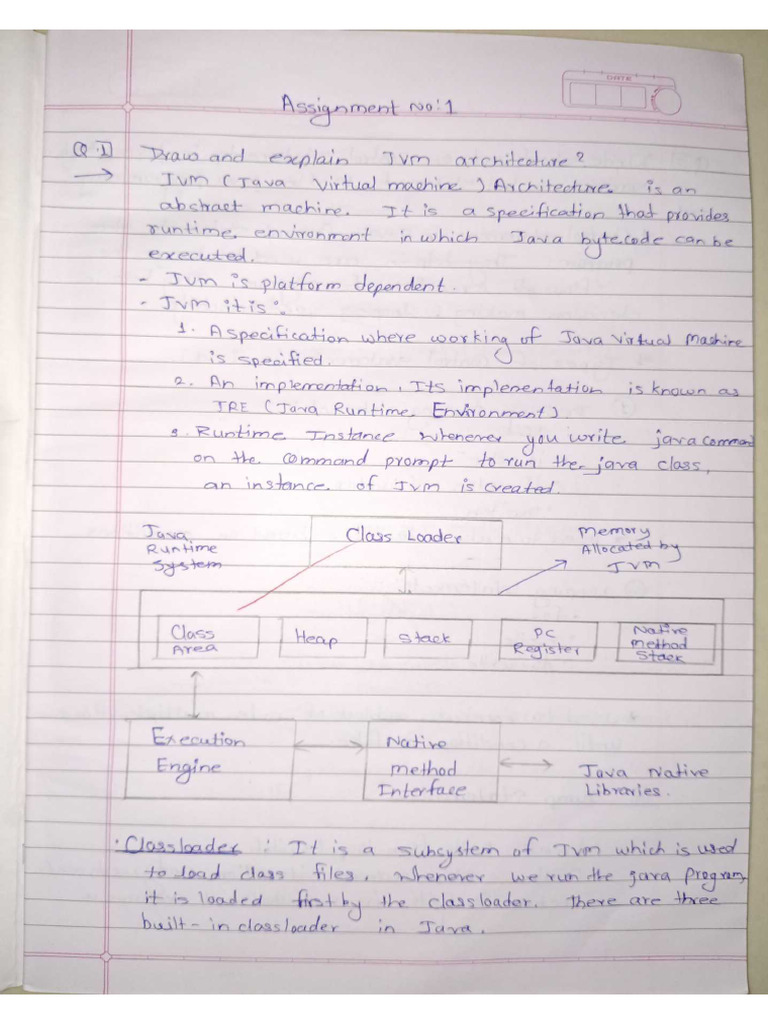 DATE
Assignment No:1
Q.1] Draw and explain JVM architecture?
→ JVM (Java Virtual machine) Architecture is an
abstract machine. It is a specification that provides
runtime environment in which Java bytecode can be
executed.
- JVM is platform dependent.
- JVM it is :
1. A specification where working of Java Virtual Machine
is specified.
2. An implementation, Its implenentation is known as
JRE (Java Runtime Environment).
3. Runtime Instance whenever you write java command
on the command prompt to run the java class,
an instance of JVM is created.
Java
Runtime
System
Class Loader
Memory
Allocated by
JVM
Class
Area
Heap
Stack
PC
Register
Native
Method
Stack
Execution
Engine
Native
method
Interface
Java Native
Libraries.
· Classloader : It is a subcystem of JVM which is used
to load class files, whenever we run the java program,
it is loaded first by the classloader. There are three
built-in classloader in Java.